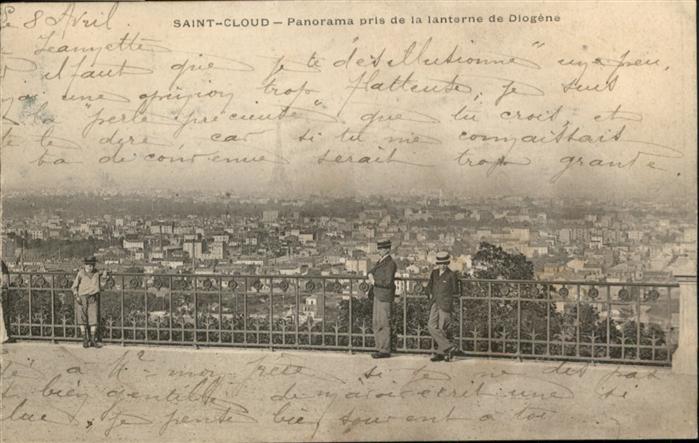 Le 8 Avril.
SAINT-CLOUD – Panorama pris de la lanterne de Diogène
Jeannette
il faut que je te "désillusionne" un peu,
a une opinion trop flatteuse, je suis
la "perle précieuse" que tu crois, et
te le dire car si tu me connaissais
ta déconvenue serait trop grande.
à moi, si je ne des pas
bien gentille de m'avoir écrit une si
je pense bien souvent à toi